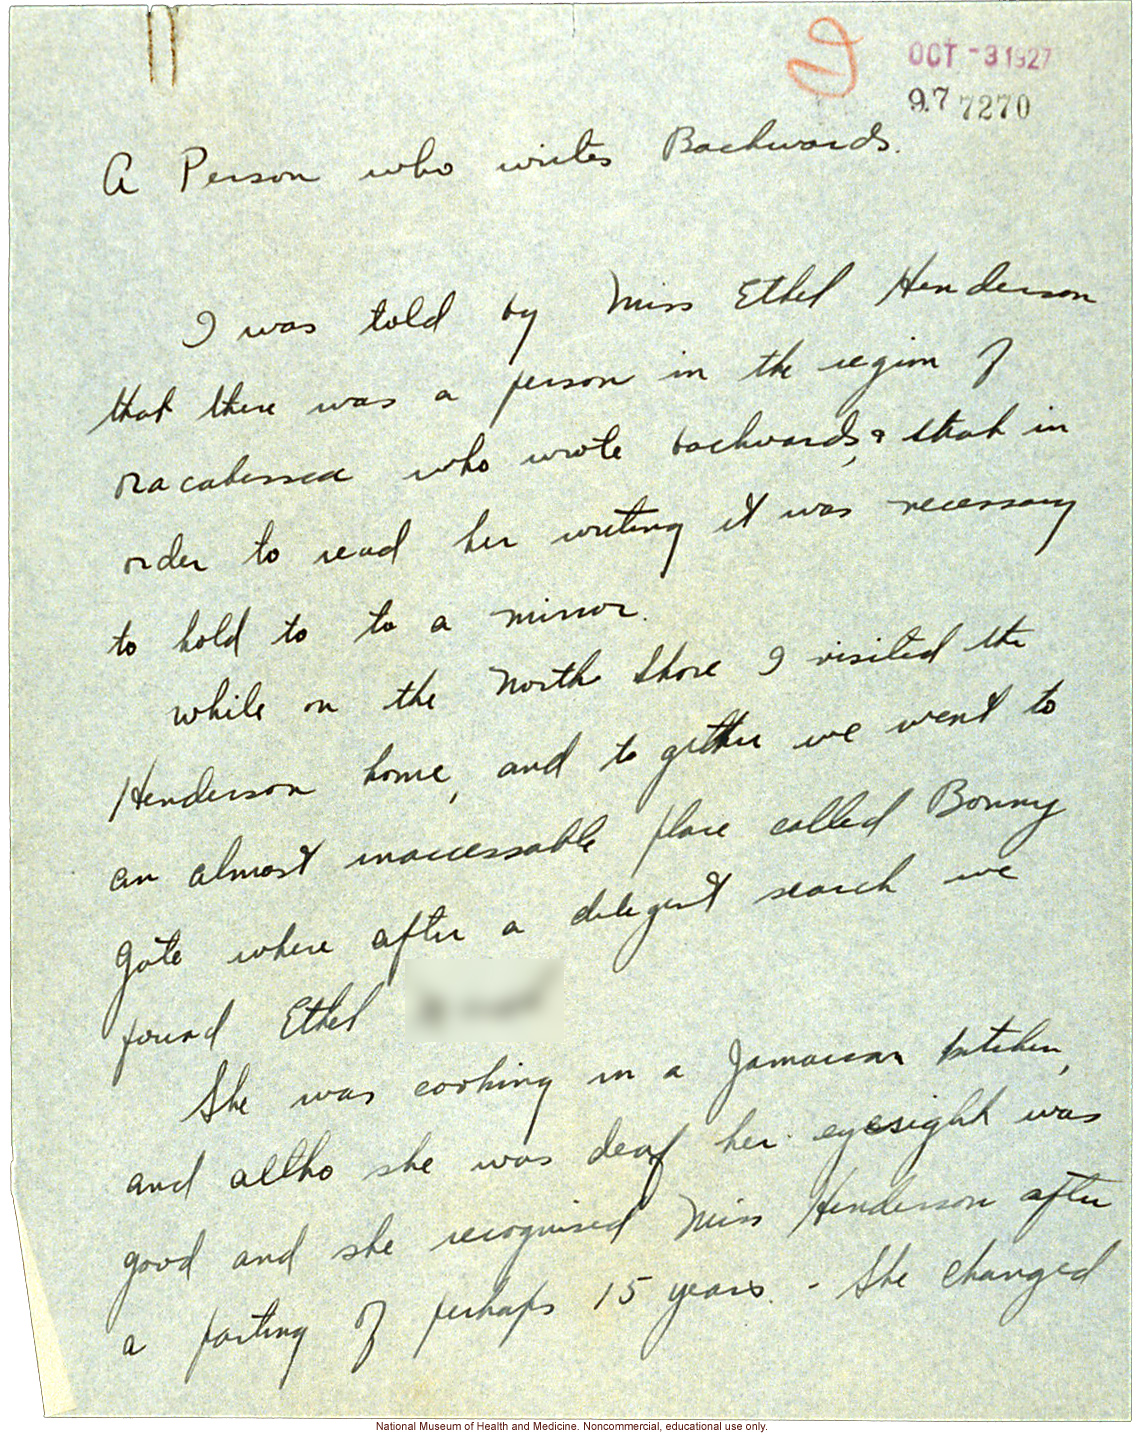 OCT -3 1927
97 7270
A Person who writes Backwards.
I was told by Miss Ethel Henderson
that there was a person in the region of
Oracabessea who wrote backwards, & that in
order to read her writing it was necessary
to hold to to a mirror.
While on the North Shore I visited the
Henderson home, and to gether we went to
an almost inaccessable place called Bonny
Gate where after a diligent search we
found Ethel
She was cooking in a Jamaican kitchen,
and altho she was deaf her eyesight was
good and she recognised Miss Henderson after
a parting of perhaps 15 years. - She changed
National Museum of Health and Medicine. Noncommercial, educational use only.